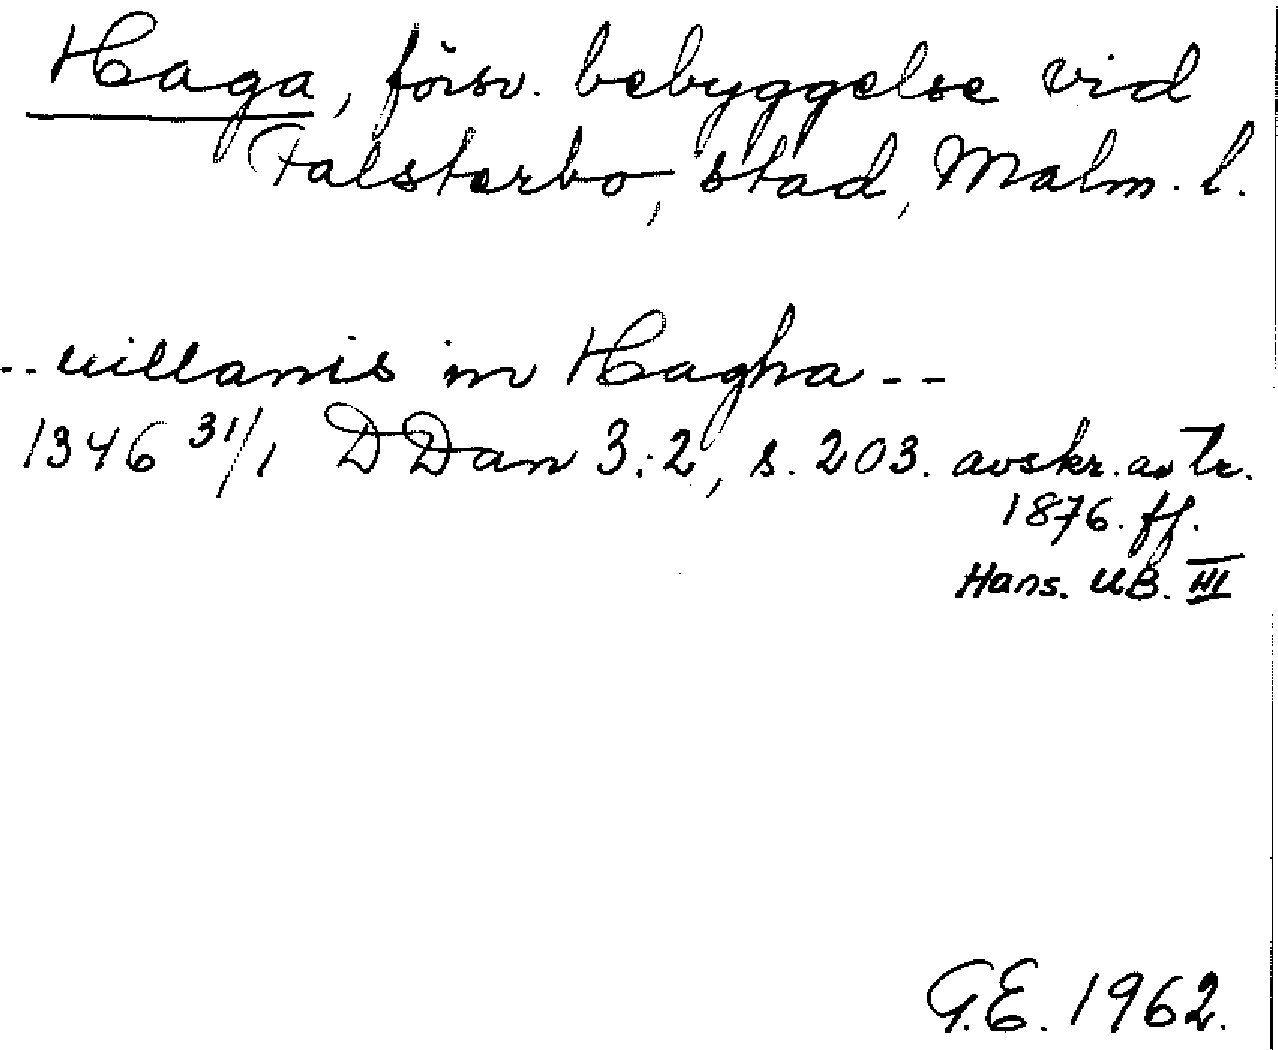 Haga, försv. bebyggelse vid
Falsterbo, stad, Malm. l.
-- uillanis in Hagha --
1346 31/1 DDan 3:2, s. 203. avskr. av tr.
1876. ff.
Hans. UB. III
G.E. 1962.